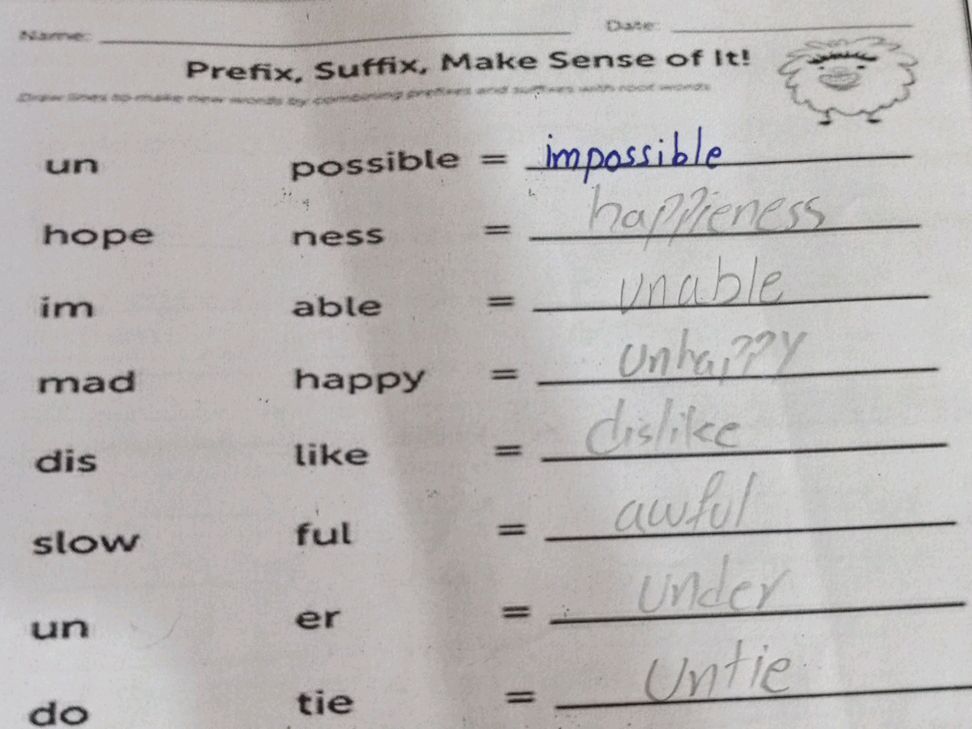 Name: Date:
Prefix, Suffix, Make Sense of It!
Draw lines to make new words by combining prefixes and suffixes with root words
un possible = impossible
hope ness = happieness
im able = unable
mad happy = unhappy
dis like = dislike
slow ful = awful
un er = under
do tie = Untie